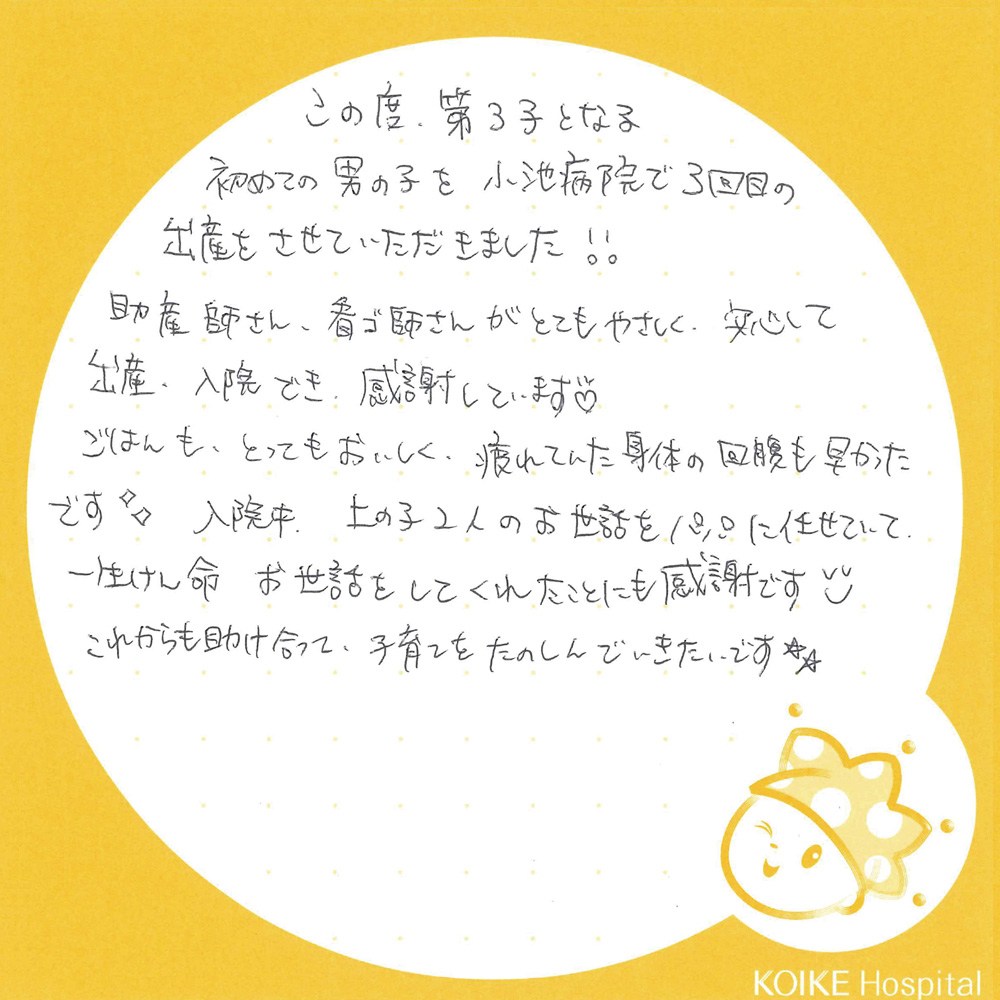 この度、第3子となる
初めての男の子を 小池病院で3回目の
出産をさせていただきました!!
助産師さん、看ゴ師さんがとてもやさしく、安心して
出産、入院でき、感謝しています♡
ごはんも、とってもおいしく、疲れていた身体の回腹も早かった
です✧✧ 入院中、上の子2人のお世話をパパに任せていて、
一生けん命 お世話をしてくれたことにも感謝です
これからも助け合って、子育てをたのしんでいきたいです☆☆
KOIKE Hospital